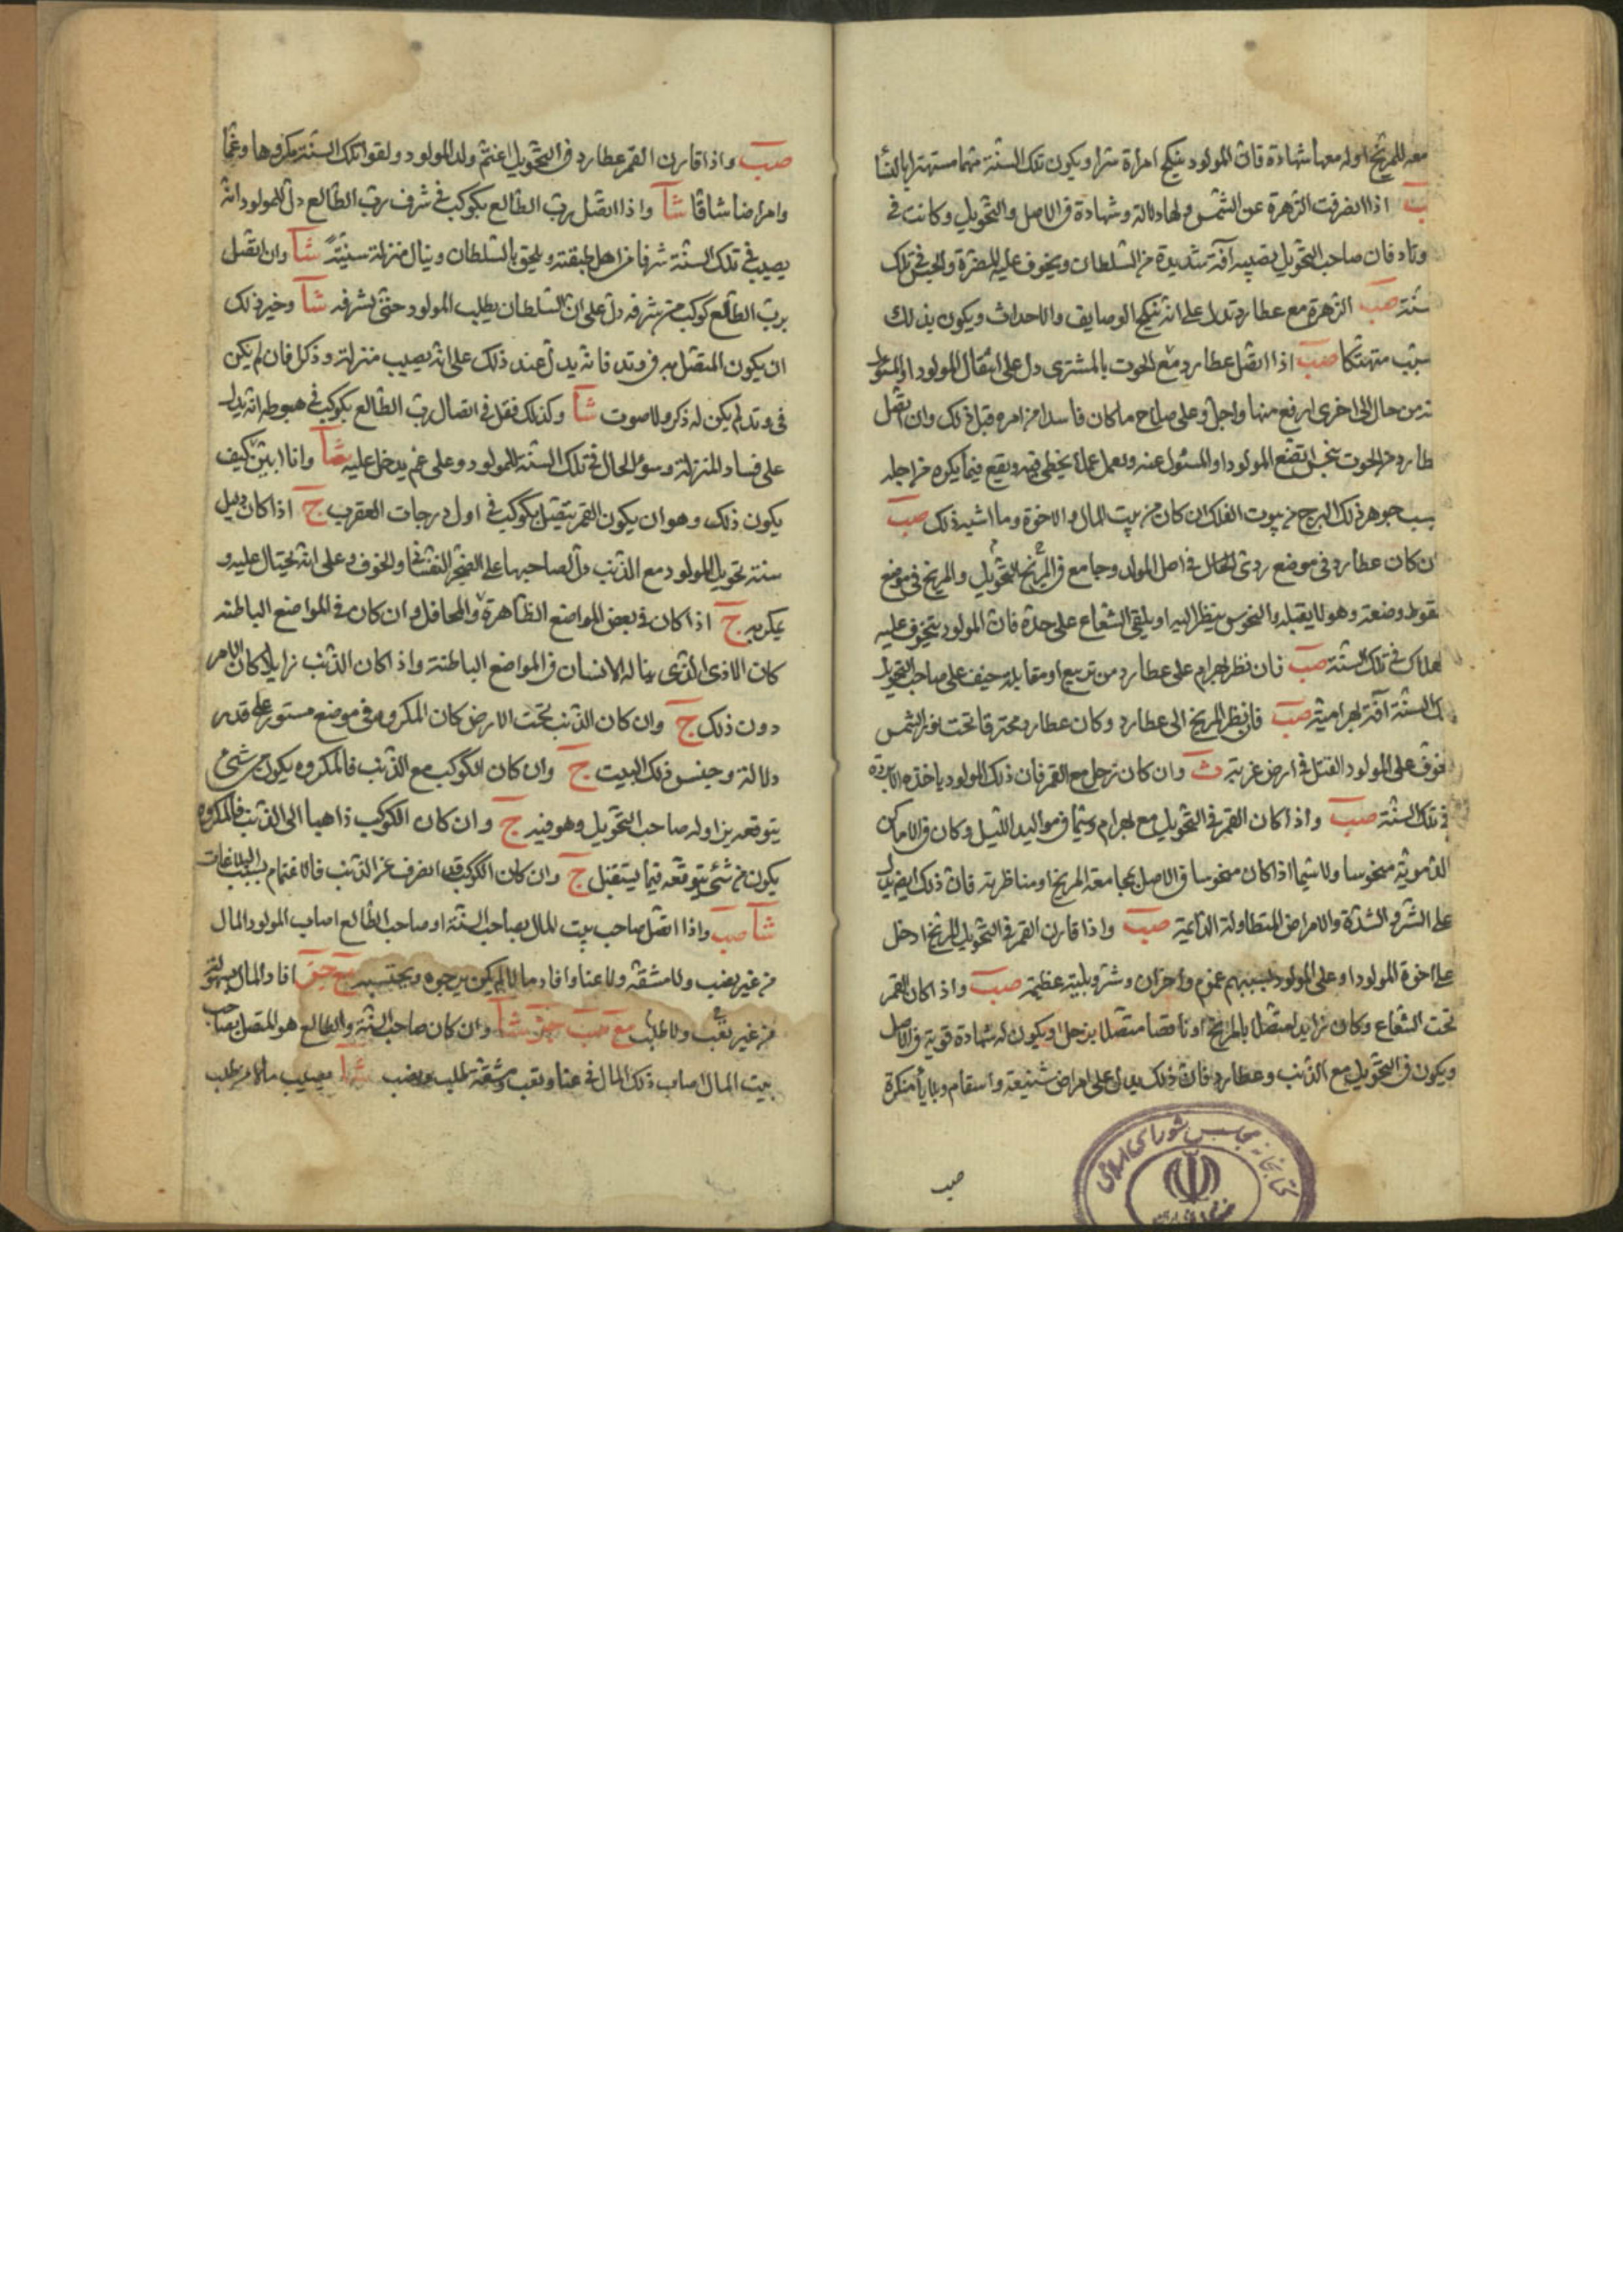 معه للمريخ او له معها شهادة فان المولود ينكح امراة شرا ويكون تلك السنة متهما مستهترا بالنسا
اذا انصرفت الزهرة عن الشمس ولها دلالة وشهادة فى الاصل والتحويل وكانت فى
وتاد فان صاحب التحويل تصيبه آفة شديدة من السلطان ويخوف عليه المضرة والحبس فى تلك
سنة صب الزهرة مع عطارد تدل على انه ينكح الوصايف والاحداث ويكون بذلك
سبب متهتكا صب اذا اتصل عطارد مع الحوت بالمشترى دل على انتقال المولود او المسئول
نه من حال الى اخرى ارفع منها واجل وعلى صلاح ما كان فاسدا من امره قبل ذلك وان اتصل
طارد من الحوت بنحس اتضع المولود او المسئول عنه وتعمل عملا يخطى فيه ويقع فيما يكره من اجله
بسب جوهر ذلك البرج من بيوت الفلك ان كان من بيت المال والاخوة وما اشبه ذلك صب
ان كان عطارد فى موضع ردى الحال فى اصل المولد وجامع المريخ فى التحويل والمريخ فى موضع
سقوط وضعة وهو لا يقبله والنحوس ينظر اليه او يلقى الشعاع على حدة فان المولود يتخوف عليه
لهلاك فى تلك السنة صب فان نظر بهرام على عطارد من تربيع او مقابلة حيف على صاحب التحويل
ك السنة آفة بهرامية صب فان نظر المريخ الى عطارد وكان عطارد محترقا تحت نور الشمس
فوف على المولود القتل فى ارض غربة ث وان كان زحل مع القمر فان ذلك المولود ياخذه الابردة
فى تلك السنة صب واذا كان القمر فى التحويل مع بهرام سيما فى مواليد الليل وكان فى الاماكن
الدموية منحوسا ولا سيما اذا كان منحوسا فى الاصل بمجامعة المريخ او مناظرته فان ذلك ايضا يدل
على الشر والشدة والامراض المتطاولة الداعية صب واذا قارن القمر فى التحويل المريخ ادخل
على اخوة المولود او على المولود بسببهم غموم واحزان وشر وبلية عظيمة صب واذا كان القمر
تحت الشعاع وكان زايدا متصلا بالمريخ او ناقصا متصلا بزحل او يكون له شهادة قوية فى الاصل
ويكون فى التحويل مع الذنب وعطارد فان ذلك يدل على امراض شنيعة واسقام وبلايا منكرة
صب
كتابخانه مجلس شوراى اسلامى
صب واذا قارن القمر عطارد فى التحويل اغتم ولد المولود ولقوا تلك السنة مكروها وغما
وامراضا شاقا شآ واذا اتصل رب الطالع بكوكب فى شرف رب الطالع دل للمولود انه
يصيب فى تلك السنة شرفا من اهل طبقته ويلحق بالسلطان وينال منزلة سنية شآ وان اتصل
برب الطالع كوكب من شرفه دل على ان السلطان يطلب المولود حتى يشرفه شآ وخير ذلك
ان يكون المتصل به فى وتد فانه يدل عند ذلك على انه يصيب منزلة وذكرا فان لم يكن
فى وتد لم يكن له ذكر ولا صوت شآ وكذلك فقل فى اتصال رب الطالع بكوكب فى هبوطه انه يدل
على فساد المنزلة وسوء الحال فى تلك السنة للمولود وعلى غم يدخل عليه شآ وانا ابين كيف
يكون ذلك وهو ان يكون القمر يتصل بكوكب فى اول درجات العقرب ج اذا كان دليل
سنة تحويل المولود مع الذنب دل لصاحبها على الضجر النفسانى والخوف وعلى انه يحتال عليه و
يمكر به ج اذا كان فى بعض المواضع الظاهرة والمحافل وان كان فى المواضع الباطنة
كان الاذى الذى يناله الانسان فى المواضع الباطنة واذا كان الذنب زايلا كان الامر
دون ذلك ج وان كان الذنب تحت الارض كان المكروه فى موضع مستور على قدر
دلالة وجنس ذلك البيت ج وان كان الكوكب مع الذنب فالمكروه يكون من شئ
يتوقعه يزاوله صاحب التحويل وهو فيه ج وان كان الكوكب ذاهبا الى الذنب فالمكروه
يكون من شئ يتوقعه فيما يستقبل ج وان كان الكوكب قد انصرف عن الذنب فالاغتمام بسبب
شآ صب واذا اتصل صاحب بيت المال بصاحب السنة او صاحب الطالع اصاب المولود المال
من غير نصب ولا مشقة ولا عنا وافاد مالا لم يكن يرجوه ويحتسبه افاد المال بسهولة
من غير تعب ولا طلب مع صب شآ وان كان صاحب السنة والطالع هو المتصل بصاحب
بيت المال اصاب ذلك المال فى عنا وتعب ومشقة وطلب ونصب شآ يصيب مالا من طلب